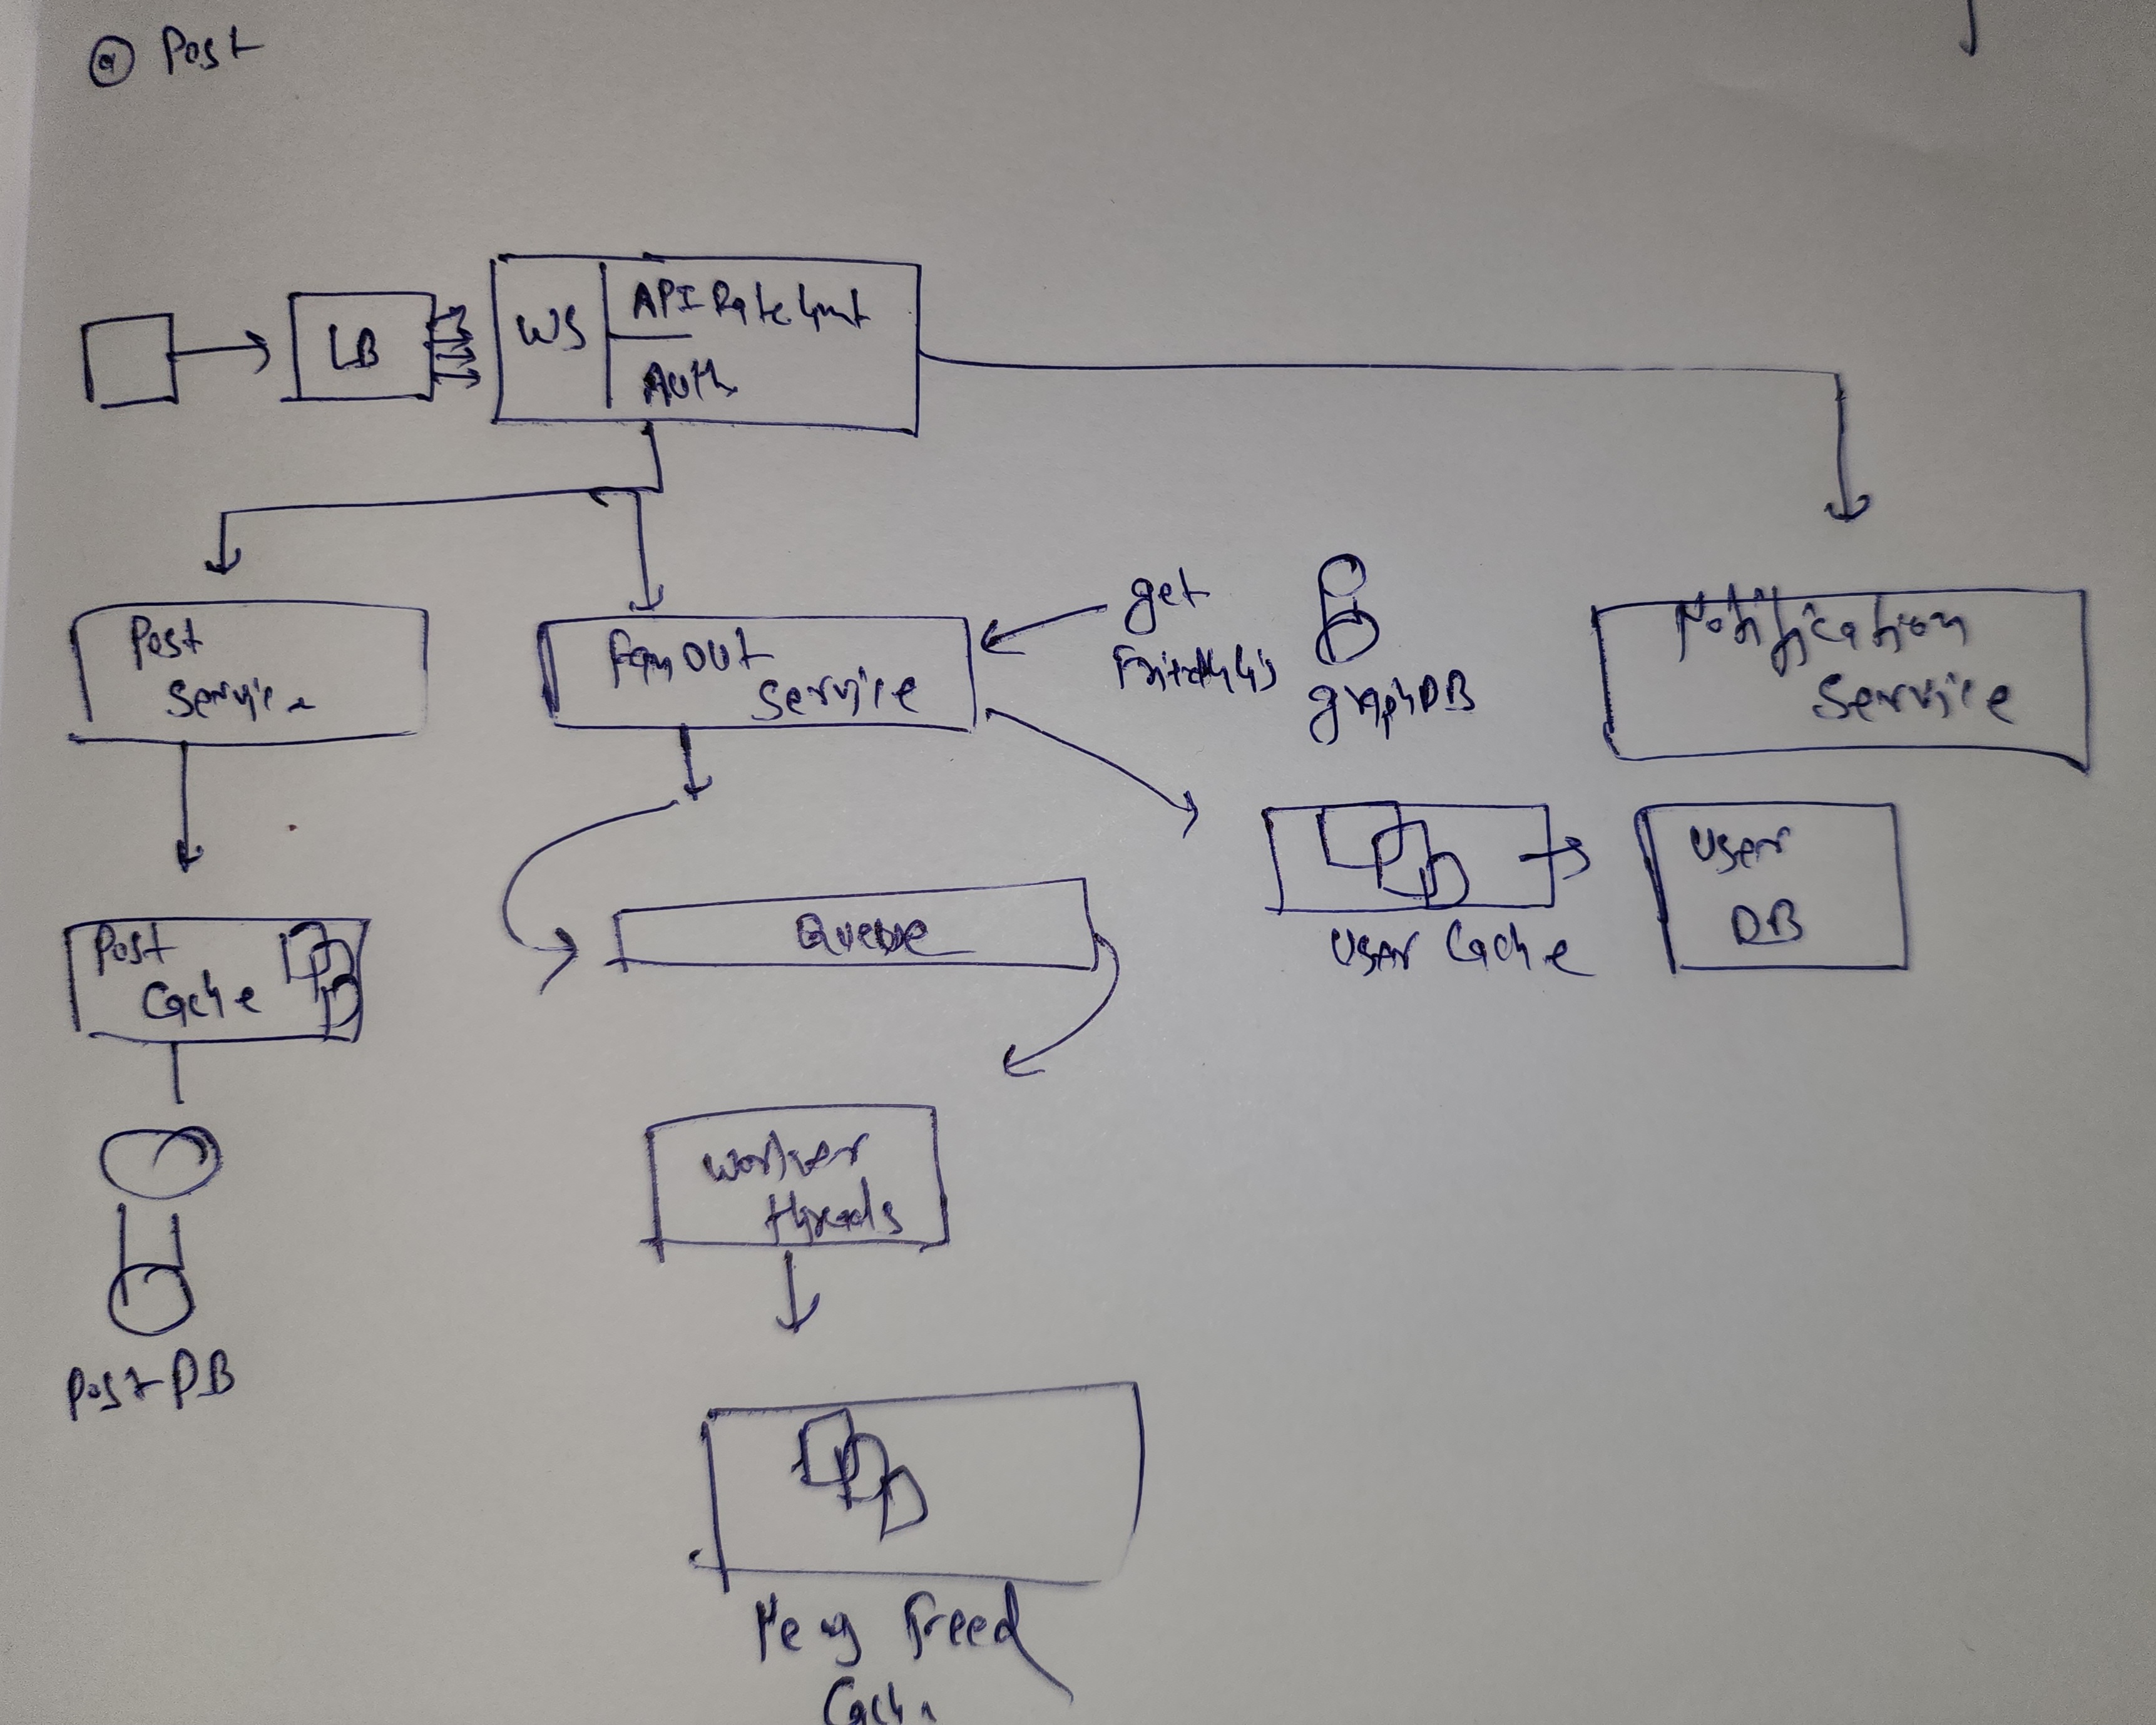 a Post
LB
WS
API Rate limit
Auth
Post
Service
Fanout
Service
get
graphDB
Notification
Service
Post
Cache
Queue
User Cache
User
DB
Worker
threads
Post DB
Feed
Cache